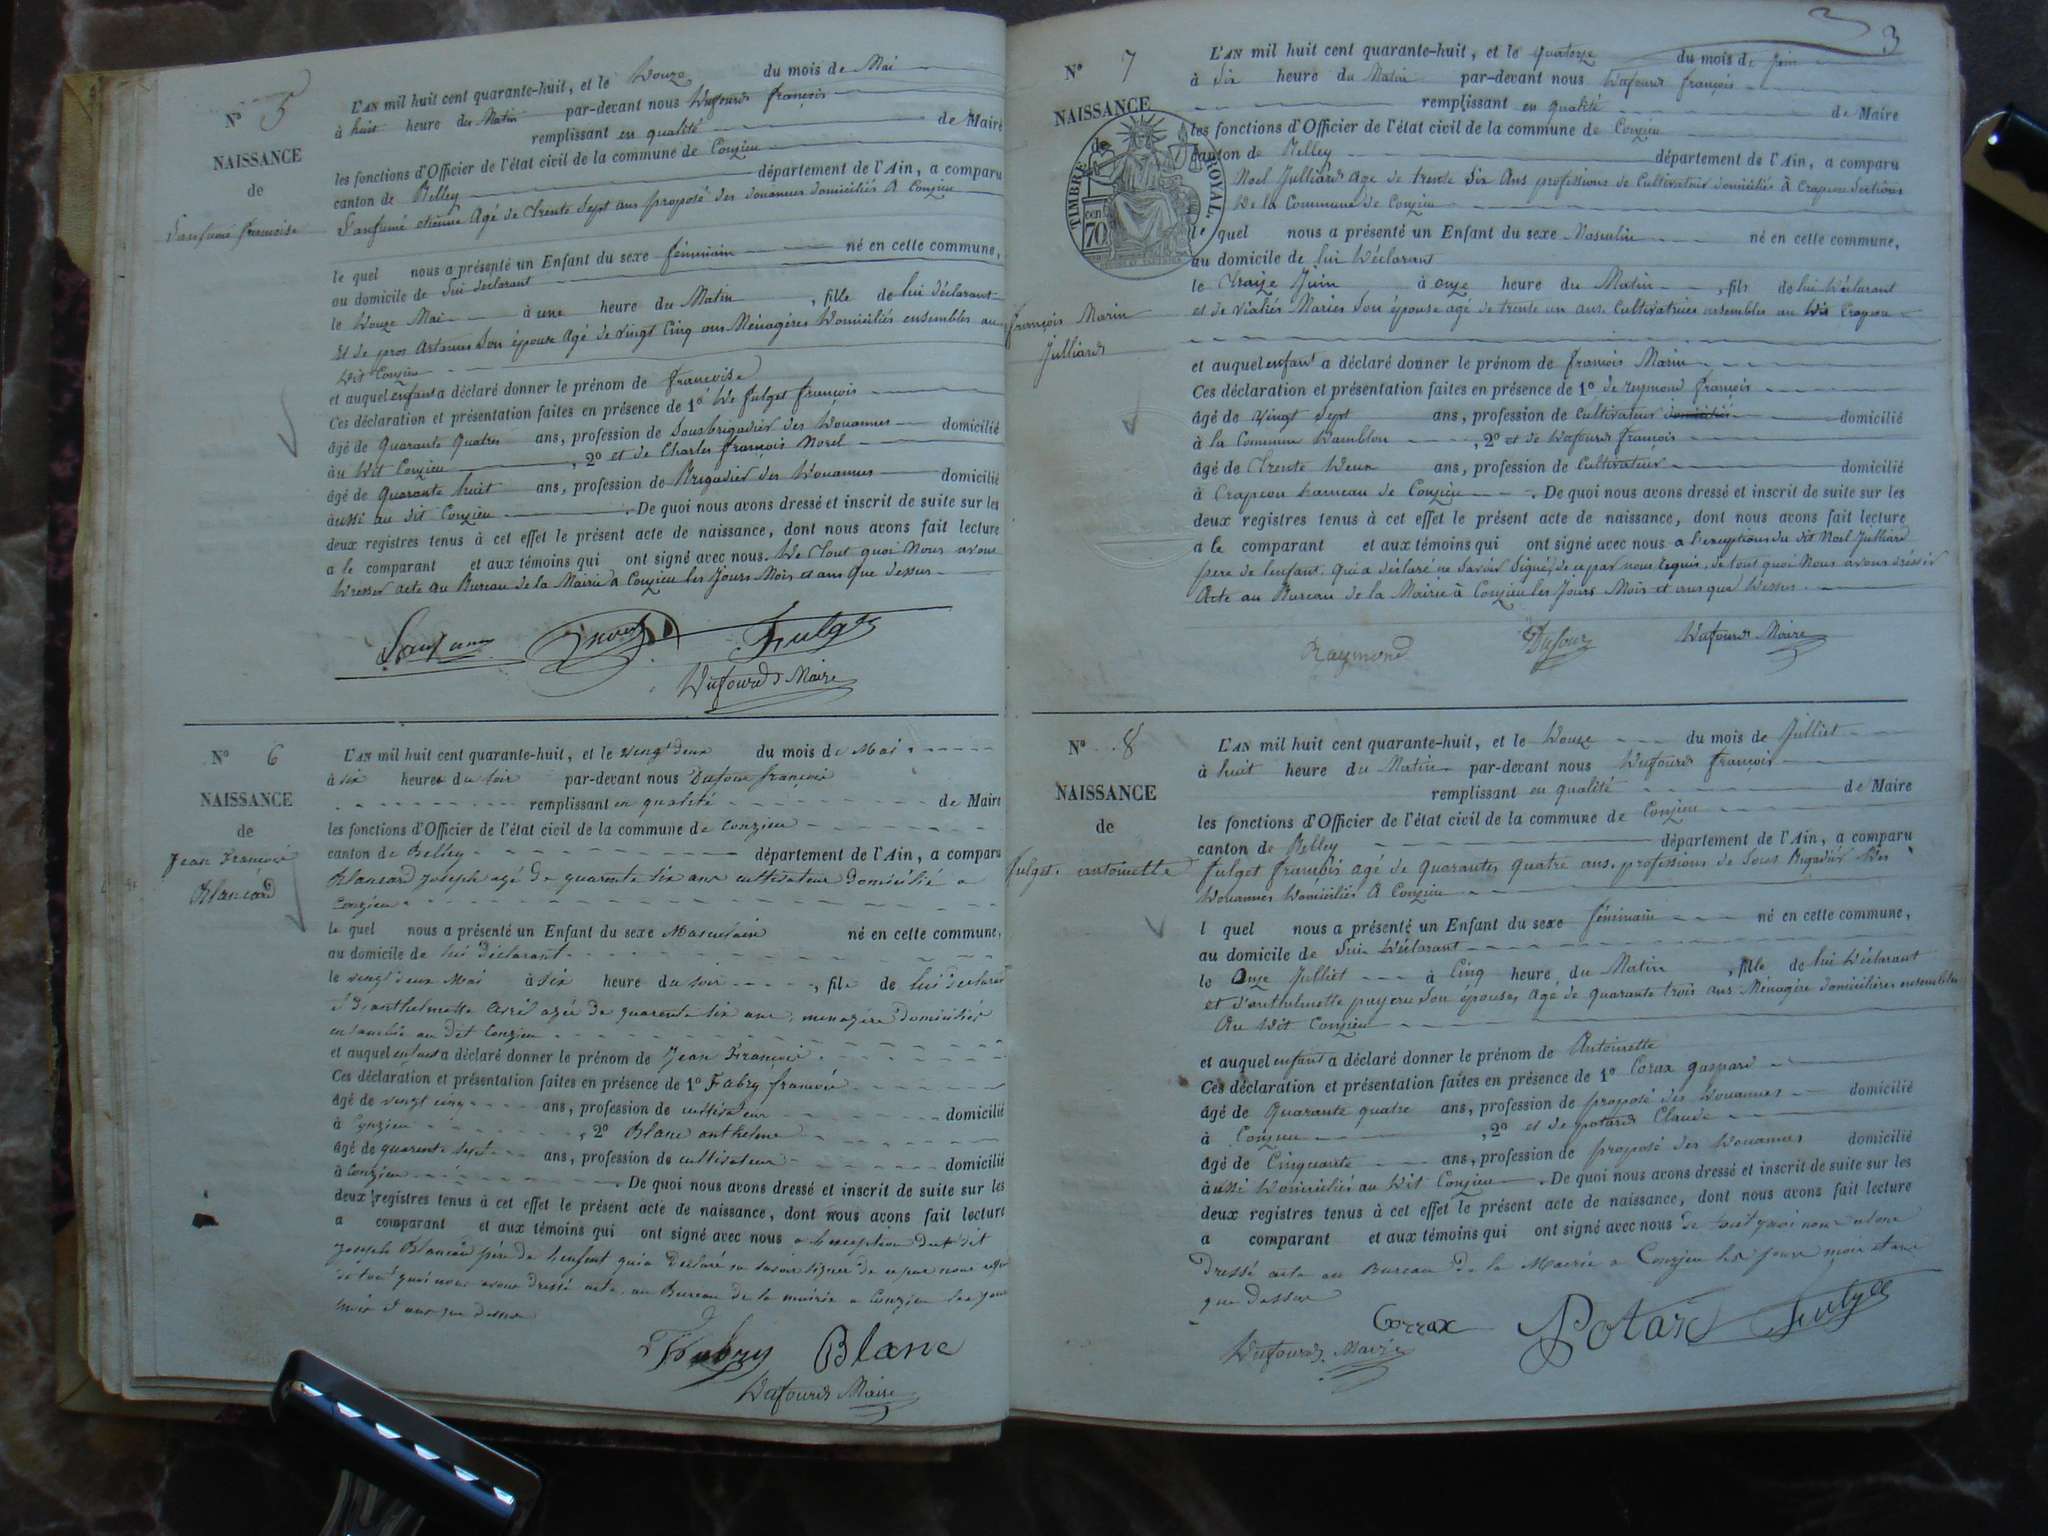 N° 5
NAISSANCE
de
françoise
L'AN mil huit cent quarante-huit, et le Douze du mois de Mai
à huit heure du Matin par-devant nous Dufourd françois
remplissant en qualité de Maire
les fonctions d'Officier de l'état civil de la commune de Conzieu
canton de Belley département de l'Ain, a comparu
etienne Agé de trente Sept ans préposé des douannes domiciliés à Conzieu
le quel nous a présenté un Enfant du sexe féminin né en cette commune,
au domicile de Lui déclarant
le Douze Mai à une heure du Matin, fille de lui déclarant
Et de Son épouse Agé de vingt Cinq ans Ménagères Domiciliés ensembles au
Dit Conzieu
et auquel enfant a déclaré donner le prénom de francoise
Ces déclaration et présentation faites en présence de 1° De fulget françois
âgé de Quarante Quatres ans, profession de Sousbrigadier des Douannes domicilié
au Dit Conzieu, 2° et de Charles françois Morel
âgé de Quarante huit ans, profession de Brigadier des Douannes domicilié
aussi au dit Conzieu. De quoi nous avons dressé et inscrit de suite sur les
deux registres tenus à cet effet le présent acte de naissance, dont nous avons fait lecture
a le comparant et aux témoins qui ont signé avec nous. De tout quoi Nous avons
Dresser acte au Bureau de la Mairie a Conzieu les Jours Mois et ans Que dessus
Fulget
Dufourd Maire
N° 6
NAISSANCE
de
Jean François
Blancard
L'AN mil huit cent quarante-huit, et le vingt deux du mois de Mai
à six heures du soir par-devant nous Dufour françois
remplissant en qualité de Maire
les fonctions d'Officier de l'état civil de la commune de Conzieu
canton de Belley département de l'Ain, a comparu
Blancard joseph agé de quarente six ans cultivateur domicilié a
Conzieu
le quel nous a présenté un Enfant du sexe Masculain né en cette commune,
au domicile de lui déclarant
le vingt deux Mai à six heure du soir, fils de lui déclarant
et d'anthelmette avril agée de quarente six ans, menagère domiciliés
au dit Conzieu
et auquel enfant a déclaré donner le prénom de Jean François
Ces déclaration et présentation faites en présence de 1° Fabry francois
âgé de vingt cinq ans, profession de cultivateur domicilié
à Conzieu, 2° Blanc anthelme
âgé de quarente sept ans, profession de cultivateur domicilié
à Conzieu. De quoi nous avons dressé et inscrit de suite sur les
deux registres tenus à cet effet le présent acte de naissance, dont nous avons fait lecture
a comparant et aux témoins qui ont signé avec nous a l'exception dut dit
joseph Blancard père de l'enfent qui a declaré ne savoir signer de ce par nous
de tout quoi nous avons dressé acte au Bureau de la mairie a Conzieu les jour
mois et ans que dessus
Fabry Blanc
Dufourd Maire
3
N° 7
NAISSANCE
de
TIMBRE ROYAL.
70 cen
François Marin
Julliard
L'AN mil huit cent quarante-huit, et le quatorze du mois de juin
à Six heure du Matin par-devant nous Dufourd françois
remplissant en qualité de Maire
les fonctions d'Officier de l'état civil de la commune de Conzieu
canton de Belley département de l'Ain, a comparu
Noel Julliard age de trente Six Ans professions de Cultivateur domiciliés à Crapeou Sections
De la Commune de Conzieu
le quel nous a présenté un Enfant du sexe Masculin né en cette commune,
au domicile de Lui Déclarant
le traize Juin à onze heure du Matin, fils de lui Déclarant
et de Maries Son épouse agé de trente un ans. Cultivatrices ensembles au Dit Crapeou
et auquel enfant a déclaré donner le prénom de François Marin
Ces déclaration et présentation faites en présence de 1° de reymond François
âgé de vingt Sept ans, profession de Cultivateur domicilié
à la Commune, 2° et de Dufourd François
âgé de trente Deux ans, profession de Cultivateur domicilié
à Crapeou hameau de Conzieu. De quoi nous avons dressé et inscrit de suite sur les
deux registres tenus à cet effet le présent acte de naissance, dont nous avons fait lecture
a le comparant et aux témoins qui ont signé avec nous a l'exceptions du dit Noel Julliard
pere de lenfant. Qui a déclaré ne Savoir Signé, de ce par nous requis, de tout quoi Nous avons dressér
Acte au Bureau de la Mairie à Conzieu les Jours Mois et ans que Dessus.
Raymond Dufour Dufourd Maire
N° 8
NAISSANCE
de
fulget antoinette
L'AN mil huit cent quarante-huit, et le Douze du mois de Julliet
à huit heure du Matin par-devant nous Dufourd françois
remplissant en qualité de Maire
les fonctions d'Officier de l'état civil de la commune de Conzieu
canton de Belley département de l'Ain, a comparu
fulget françois agé de Quarantes quatre ans. professions de Sous Brigadier Des
Douannes Domiciliés A Conzieu
l quel nous a présenté un Enfant du sexe féminin né en cette commune,
au domicile de Lui Déclarant
le Onze Julliet à Cinq heure du Matin, fille de lui Déclarant
et d'anthelmette Son épouses Agé de quarante trois ans Ménagère domiciliers ensembles
Au Dit Conzieu
et auquel enfant a déclaré donner le prénom de Antoinette
Ces déclaration et présentation faites en présence de 1° Corax gaspard
âgé de Quarante quatre ans, profession de préposé des Douannes domicilié
à Conzieu, 2° et de potard Claude
âgé de Cinquante ans, profession de préposé des Douannes domicilié
aussi Domiciliés au Dit Conzieu. De quoi nous avons dressé et inscrit de suite sur les
deux registres tenus à cet effet le présent acte de naissance, dont nous avons fait lecture
a comparant et aux témoins qui ont signé avec nous de tout quoi nous avons
dressé acte au Bureau de la Mairie a Conzieu les jours mois et ans
que dessus
Corrax Potard Fulget
Dufourd Maire